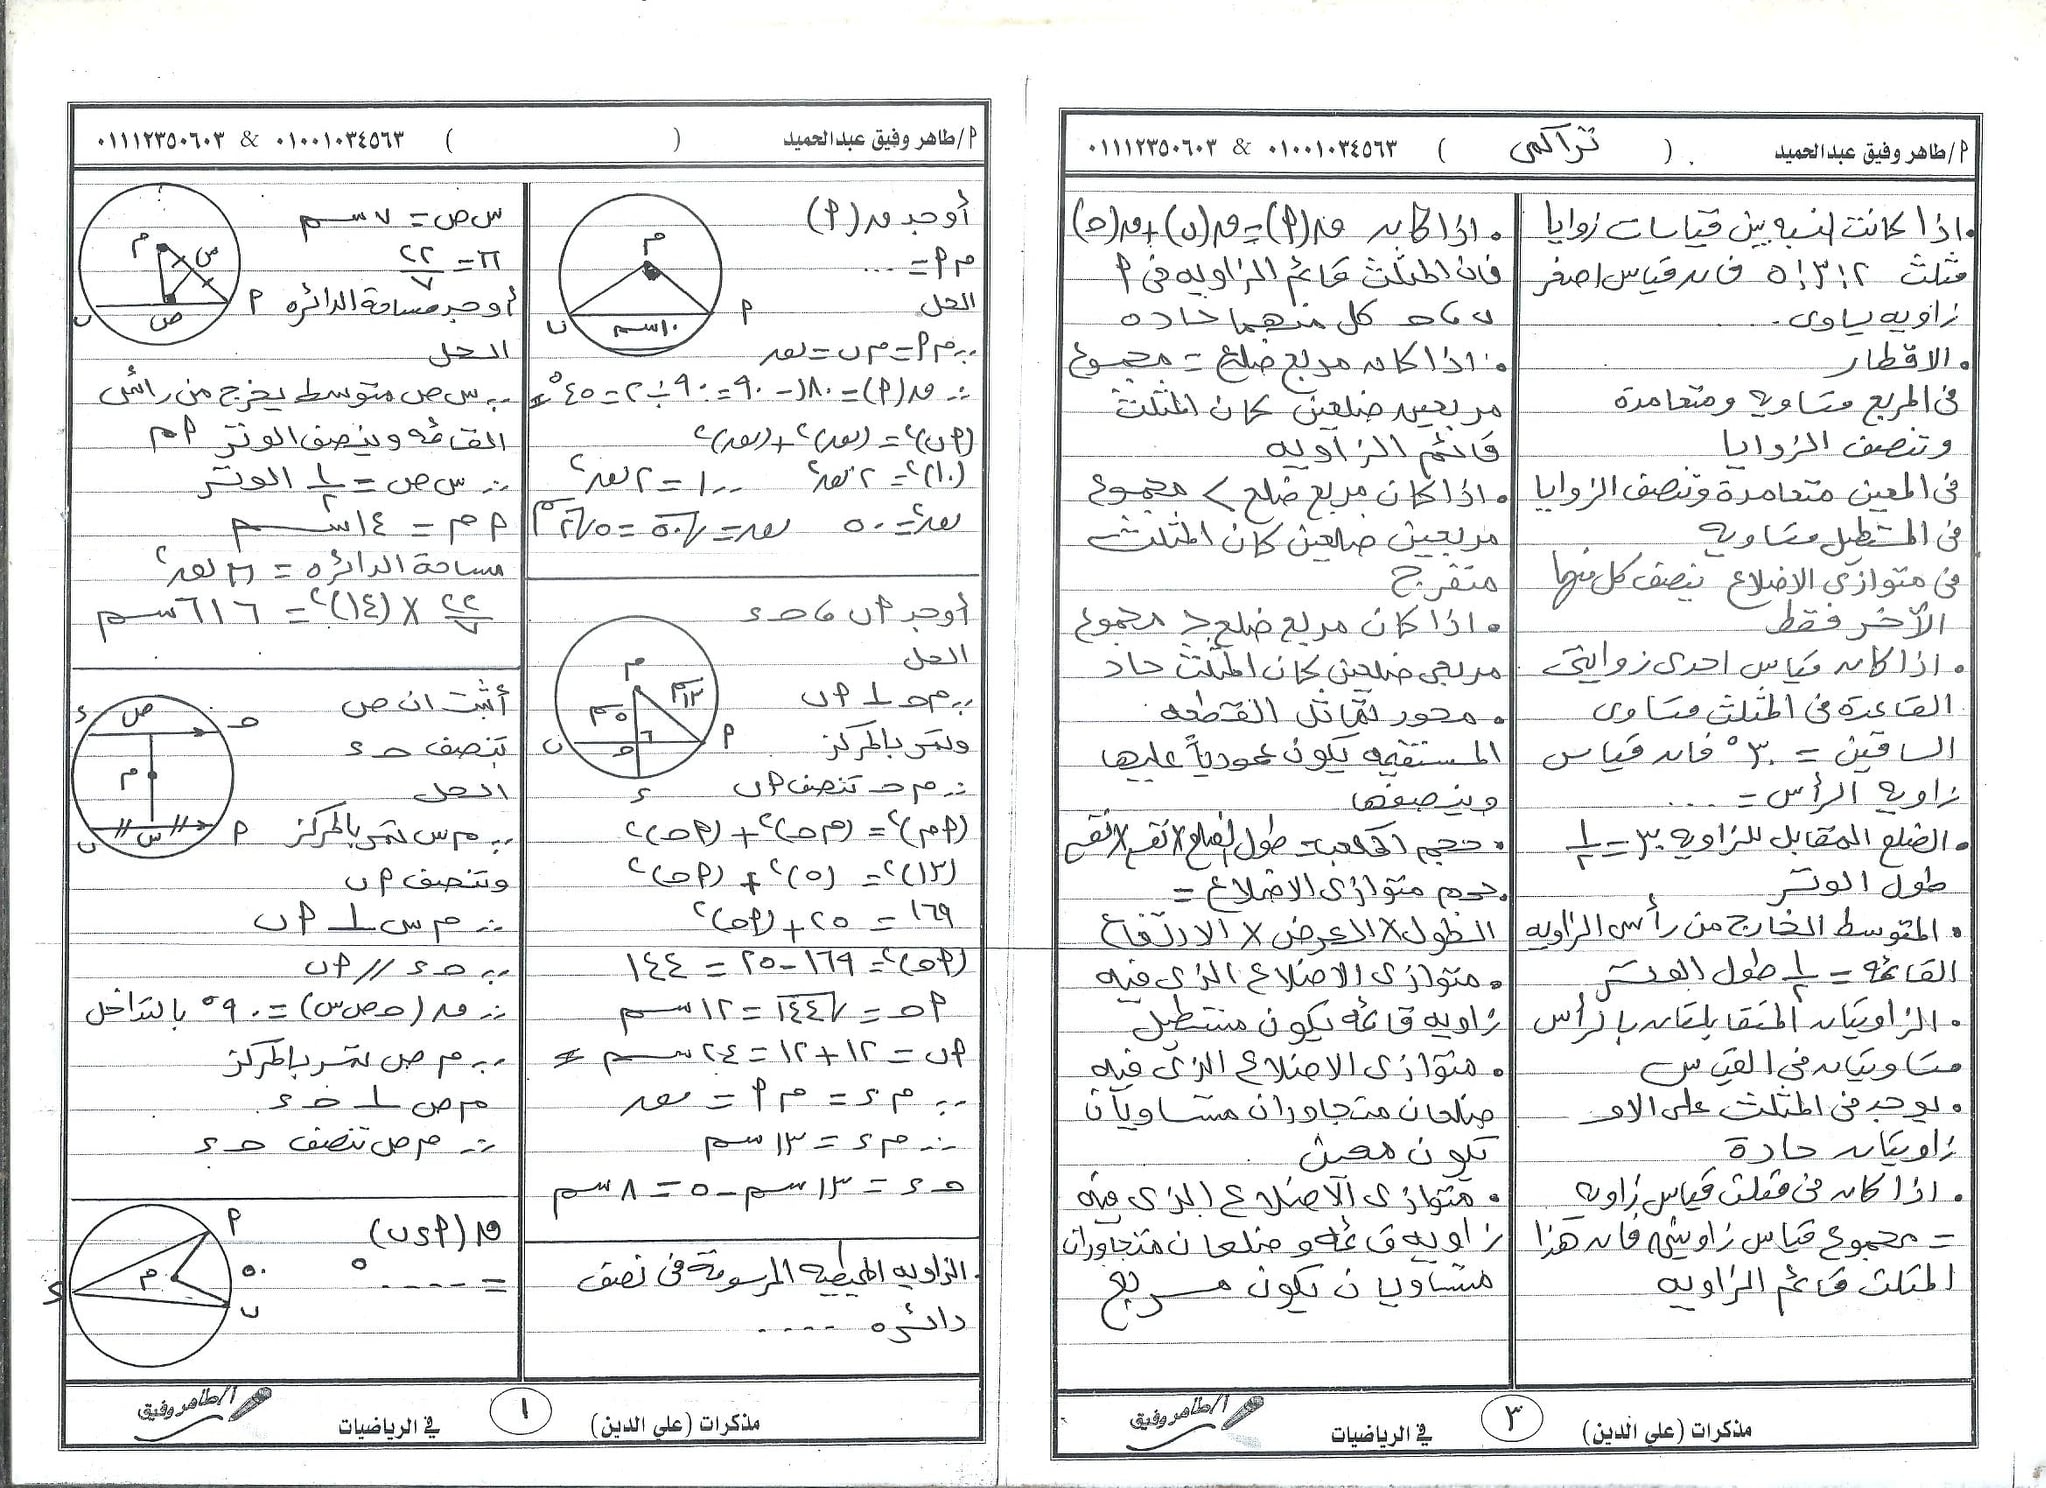 ٢/طاهر وفيق عبدالحميد ( تراكمى ) ٠١٠٠١٠٣٤٥٦٣ & ٠١١١٢٣٥٠٦٠٣
• اذا كانت النسبه بين قياسات زوايا
مثلث ٢:٣:٥ فان قياس اصغر
زاويه يساوى . . .
• الاقطار
فى المربع متساويه ومتعامدة
وتنصف الزوايا
فى المعين متعامدة وتنصف الزوايا
فى المستطيل متساويه
فى متوازى الاضلاع ينصف كل منهما
الآخر فقط
• اذا كان قياس احدى زوايتى
القاعدة فى المثلث متساوى
الساقين = ٣٠° فان قياس
زاويه الرأس = . . . .
• الضلع المقابل للزاويه ٣٠ = ١/٢
طول الوتر
• المتوسط الخارج من رأس الزاويه
القائمه = ١/٢ طول الوتر
• الزاويتان المتقابلتان بالرأس
متساويتان فى القياس
• يوجد فى المثلث على الاو
زاويتان حادة
• اذا كان فى مثلث قياس زاويه
= مجموع قياس زاويتيى فان هذا
المثلث قائم الزاويه
• اذا كان ق(٩) = ق(ں) + ق(ح)
فان المثلث قائم الزاويه فى ٩
ں ، ح كل منهما حاده
• اذا كان مربع ضلع = مجموع
مربعين ضلعين كان المثلث
قائم الزاويه
• اذا كان مربع ضلع > مجموع
مربعين ضلعين كان المثلث
منفرج
• اذا كان مربع ضلع < مجموع
مربعى ضلعين كان المثلث حاد
• محور تماثل القطعه
المستقيمه يكون عمودياً عليها
وينصفها
• حجم المكعب = طول الضلع × نفسه × نفسه
• حجم متوازى الاضلاع =
الطول × العرض × الارتفاع
• متوازى الاضلاع الذى فيه
زاويه قائمه يكون مستطيل
• متوازى الاضلاع الذى فيه
ضلعان متجاوران متساويان
تكون معين
• متوازى الاضلاع الذى فيه
زاويه قائمه وضلعان متجاوران
متساويان يكون مربع
مذكرات (علي الدين) ٣ في الرياضيات
أ/طاهر وفيق
٢/طاهر وفيق عبدالحميد ( ) ٠١٠٠١٠٣٤٥٦٣ & ٠١١١٢٣٥٠٦٠٣
أوجد ق(٩)
م٩ = ...
الحل
م
٩
ں
١٠سم
∵ م٩ = مں = نق
∴ ق(٩) = ١٨٠ - ٩٠ = ٩٠ ÷ ٢ = ٤٥°
(٩ں)² = (نق)² + (نق)²
(١٠)² = ٢نق² ١٠٠ = ٢نق²
نق² = ٥٠ نق = √٥٠ = ٥√٢سم
أوجد ٩ں ، حء
الحل
م
١٣سم
٥سم
٩
ح
ں
ء
∵ مح ⊥ ٩ں
وتمر بالمركز
∴ مح تنصف ٩ں
(٩م)² = (مح)² + (٩ح)²
(١٣)² = (٥)² + (٩ح)²
١٦٩ = ٢٥ + (٩ح)²
(٩ح)² = ١٦٩ - ٢٥ = ١٤٤
٩ح = √١٤٤ = ١٢سم
٩ں = ١٢ + ١٢ = ٢٤سم
∵ مء = م٩ = نق
∴ مء = ١٣سم
حء = ١٣سم - ٥ = ٨سم
• الزاويه المحيطيه المرسومة فى نصف
دائره . . . .
س ص = ٧سم
π = ٢٢/٧
أوجد مساحة الدائره
الحل
م
س
٩
ص
ں
∵ س ص متوسط يخرج من رأس
القائمه وينصف الوتر ٩م
∴ س ص = ١/٢ الوتر
٩م = ١٤سم
مساحة الدائره = π نق²
٢٢/٧ × (١٤)² = ٦١٦سم
أثبت ان ص
تنصف حء
الحل
ء
ص
ح
م
٩
س
ں
∵ م س تمر بالمركز
وتنصف ٩ں
∴ م س ⊥ ٩ں
∵ حء // ٩ں
∴ ق(ح ص س) = ٩٠° بالتداخل
∵ م ص تمر بالمركز
م ص ⊥ حء
∴ م ص تنصف حء
ق(٩ءں)
= . . . . °
٩
م
٥٠
ں
ء
مذكرات (علي الدين) ١ في الرياضيات
أ/طاهر وفيق